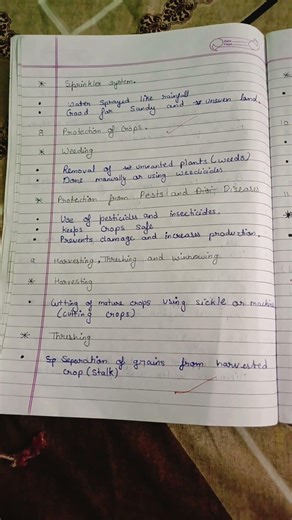 * Sprinkler system.
• Water sprayed like rainfall
• Good for Sandy and uneven land.
8 Protection of Crops.
* Weeding
• Removal of unwanted plants (weeds)
• Done manually or using weedicides
* Protection from Pests and Diseases
• Use of pesticides and insecticides.
• Keeps crops safe
• Prevents damage and increases production.
9 Harvesting, Threshing and Winnowing.
* Harvesting
• Cutting of mature crops using sickle or machine
(cutting crops)
* Threshing
• Separation of grains from harvested
crop (stalk)